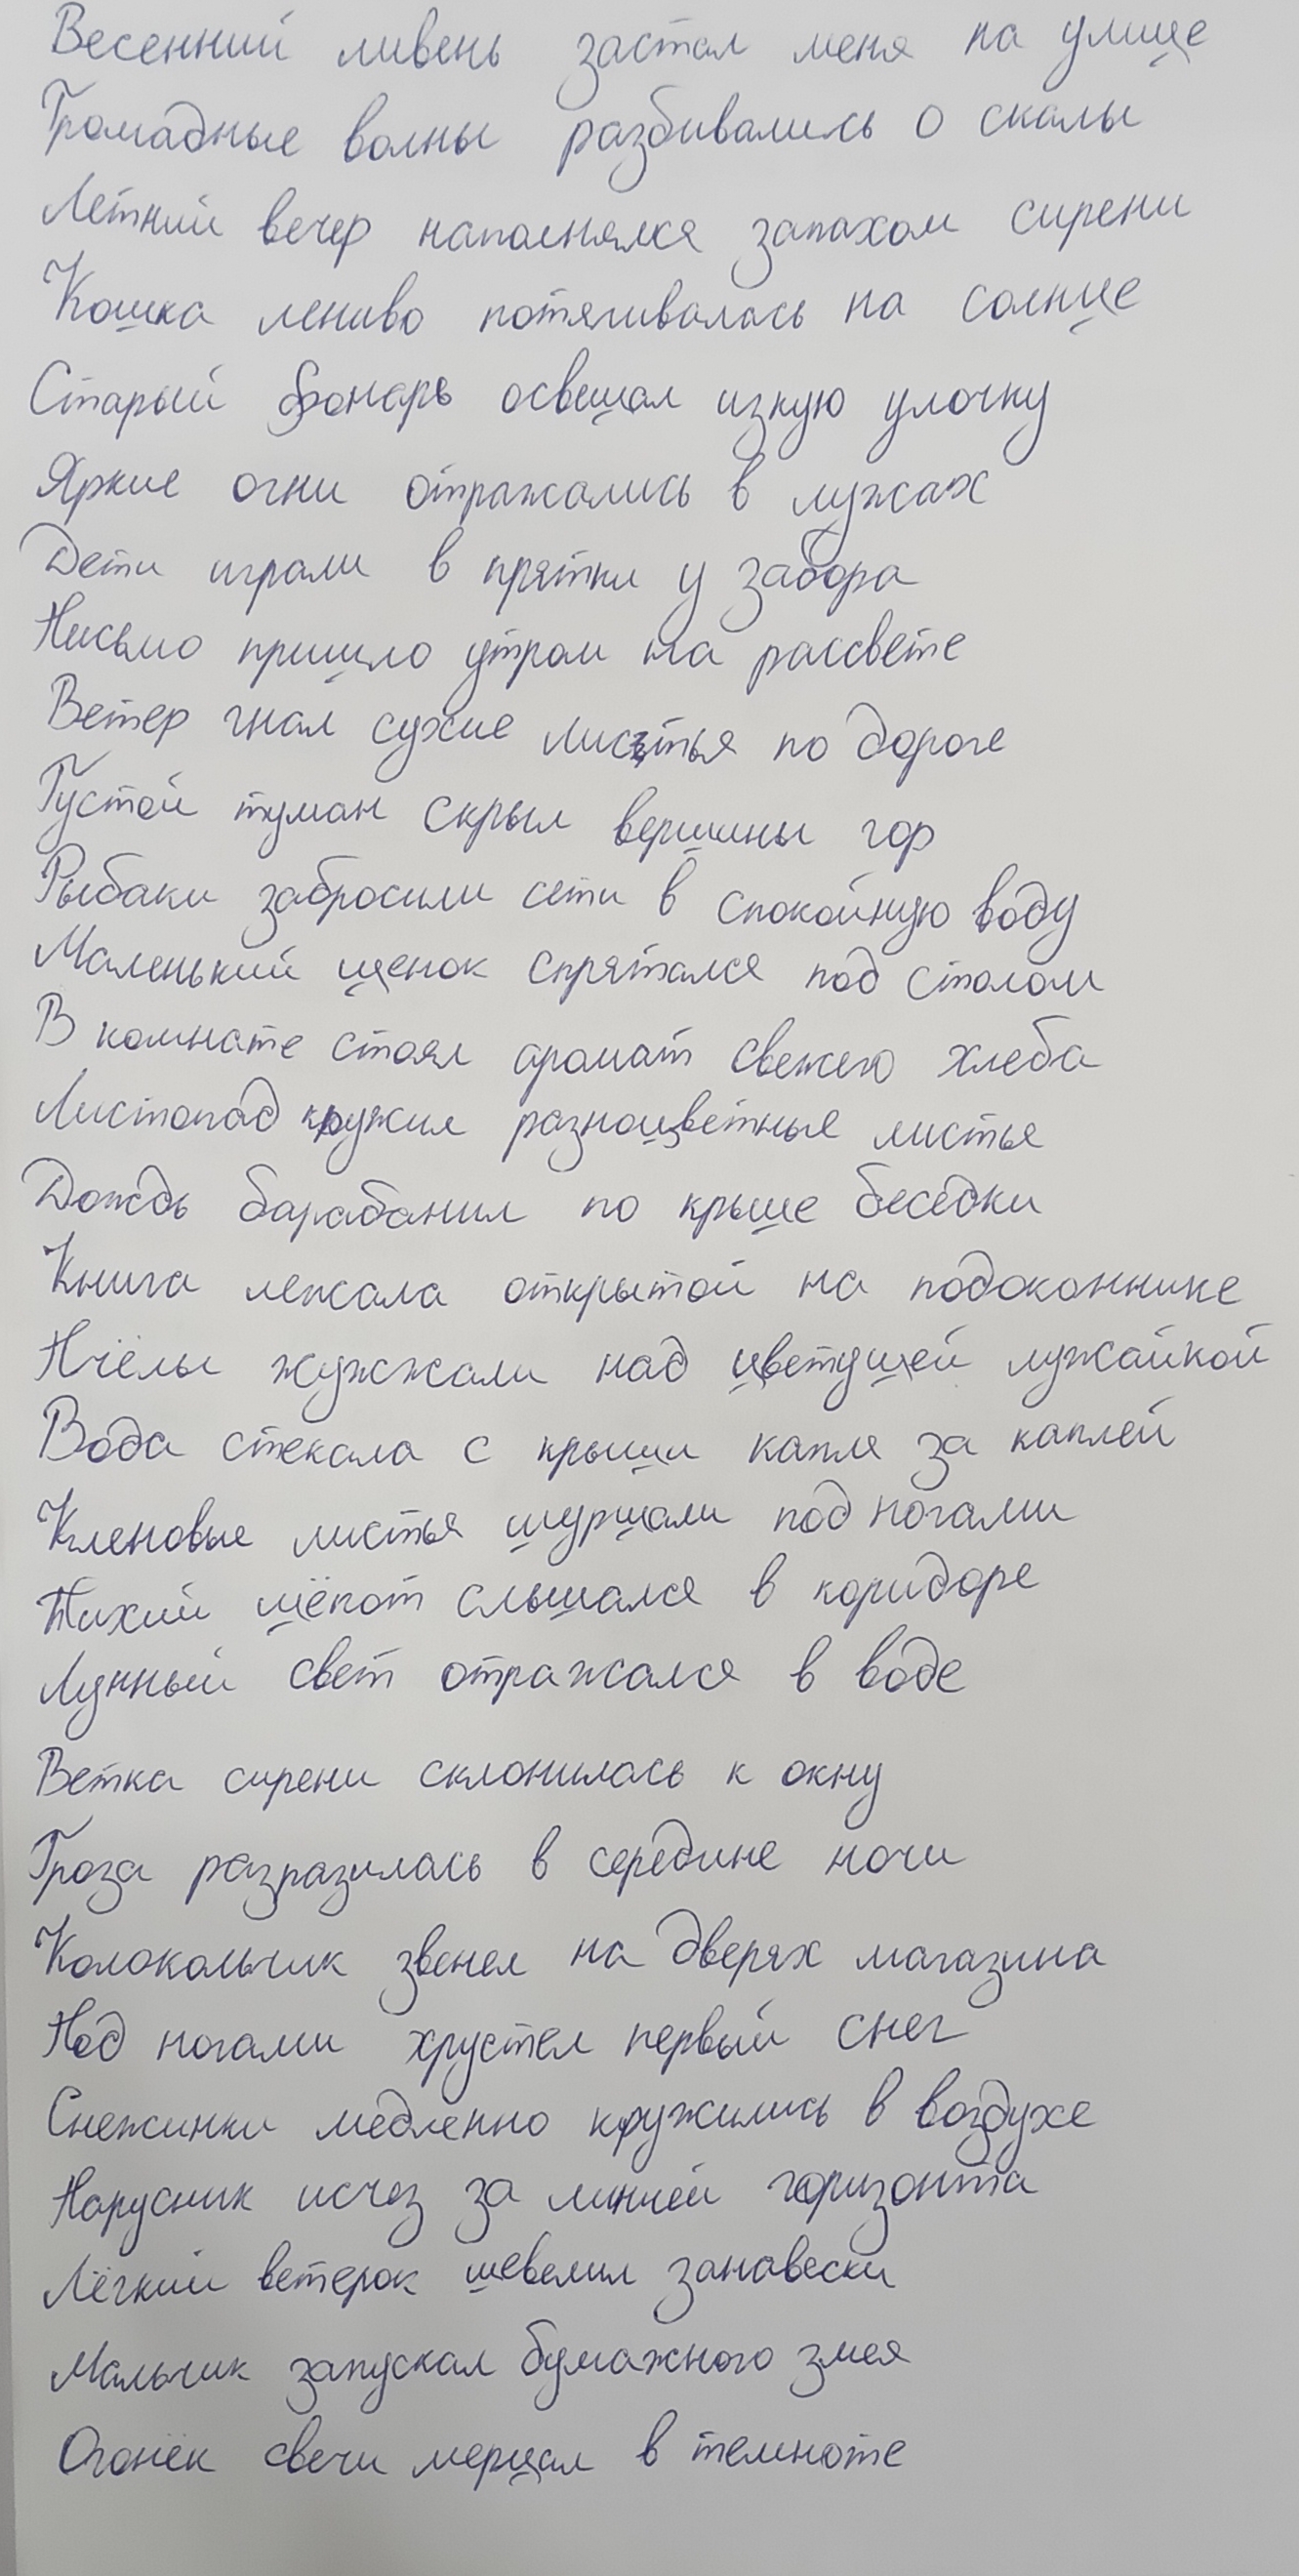 Весенний ливень застал меня на улице
Громадные волны разбивались о скалы
Летний вечер наполнялся запахом сирени
Кошка лениво потягивалась на солнце
Старый фонарь освещал узкую улочку
Яркие огни отражались в лужах
Дети играли в прятки у забора
Письмо пришло утром на рассвете
Ветер гнал сухие листья по дороге
Густой туман скрыл вершины гор
Рыбаки забросили сети в спокойную воду
Маленький щенок спрятался под столом
В комнате стоял аромат свежего хлеба
Листопад кружил разноцветные листья
Дождь барабанил по крыше беседки
Книга лежала открытой на подоконнике
Пчёлы жужжали над цветущей лужайкой
Вода стекала с крыши капля за каплей
Кленовые листья шуршали под ногами
Тихий шёпот слышался в коридоре
Лунный свет отражался в воде
Ветка сирени склонилась к окну
Гроза разразилась в середине ночи
Колокольчик звенел на дверях магазина
Под ногами хрустел первый снег
Снежинки медленно кружились в воздухе
Парусник исчез за линией горизонта
Лёгкий ветерок шевелил занавески
Мальчик запускал бумажного змея
Огонёк свечи мерцал в темноте